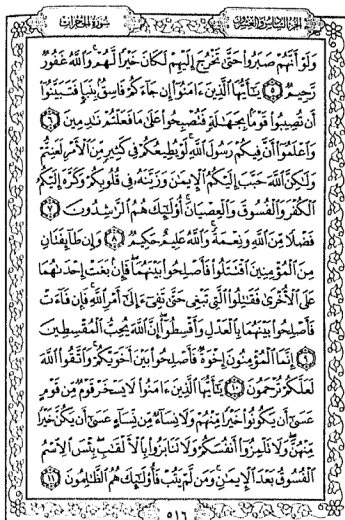 الجزء السادس والعشرون سورة الحجرات
وَلَوْ أَنَّهُمْ صَبَرُوا۟ حَتَّىٰ تَخْرُجَ إِلَيْهِمْ لَكَانَ خَيْرًا لَّهُمْ وَٱللَّهُ غَفُورٌ
رَّحِيمٌ ٥ يَٰٓأَيُّهَا ٱلَّذِينَ ءَامَنُوٓا۟ إِن جَآءَكُمْ فَاسِقٌۢ بِنَبَإٍ فَتَبَيَّنُوٓا۟
أَن تُصِيبُوا۟ قَوْمًۢا بِجَهَٰلَةٍ فَتُصْبِحُوا۟ عَلَىٰ مَا فَعَلْتُمْ نَٰدِمِينَ ٦
وَٱعْلَمُوٓا۟ أَنَّ فِيكُمْ رَسُولَ ٱللَّهِ لَوْ يُطِيعُكُمْ فِى كَثِيرٍ مِّنَ ٱلْأَمْرِ لَعَنِتُّمْ
وَلَٰكِنَّ ٱللَّهَ حَبَّبَ إِلَيْكُمُ ٱلْإِيمَٰنَ وَزَيَّنَهُۥ فِى قُلُوبِكُمْ وَكَرَّهَ إِلَيْكُمُ
ٱلْكُفْرَ وَٱلْفُسُوقَ وَٱلْعِصْيَانَ أُو۟لَٰٓئِكَ هُمُ ٱلرَّٰشِدُونَ ٧
فَضْلًا مِّنَ ٱللَّهِ وَنِعْمَةً وَٱللَّهُ عَلِيمٌ حَكِيمٌ ٨ وَإِن طَآئِفَتَانِ
مِنَ ٱلْمُؤْمِنِينَ ٱقْتَتَلُوا۟ فَأَصْلِحُوا۟ بَيْنَهُمَا فَإِنۢ بَغَتْ إِحْدَىٰهُمَا
عَلَى ٱلْأُخْرَىٰ فَقَٰتِلُوا۟ ٱلَّتِى تَبْغِى حَتَّىٰ تَفِىٓءَ إِلَىٰٓ أَمْرِ ٱللَّهِ فَإِن فَآءَتْ
فَأَصْلِحُوا۟ بَيْنَهُمَا بِٱلْعَدْلِ وَأَقْسِطُوٓا۟ إِنَّ ٱللَّهَ يُحِبُّ ٱلْمُقْسِطِينَ
٩ إِنَّمَا ٱلْمُؤْمِنُونَ إِخْوَةٌ فَأَصْلِحُوا۟ بَيْنَ أَخَوَيْكُمْ وَٱتَّقُوا۟ ٱللَّهَ
لَعَلَّكُمْ تُرْحَمُونَ ١٠ يَٰٓأَيُّهَا ٱلَّذِينَ ءَامَنُوا۟ لَا يَسْخَرْ قَوْمٌ مِّن قَوْمٍ
عَسَىٰٓ أَن يَكُونُوا۟ خَيْرًا مِّنْهُمْ وَلَا نِسَآءٌ مِّن نِّسَآءٍ عَسَىٰٓ أَن يَكُنَّ خَيْرًا
مِّنْهُنَّ وَلَا تَلْمِزُوٓا۟ أَنفُسَكُمْ وَلَا تَنَابَزُوا۟ بِٱلْأَلْقَٰبِ بِئْسَ ٱلِٱسْمُ
ٱلْفُسُوقُ بَعْدَ ٱلْإِيمَٰنِ وَمَن لَّمْ يَتُبْ فَأُو۟لَٰٓئِكَ هُمُ ٱلظَّٰلِمُونَ ١١
٥١٦